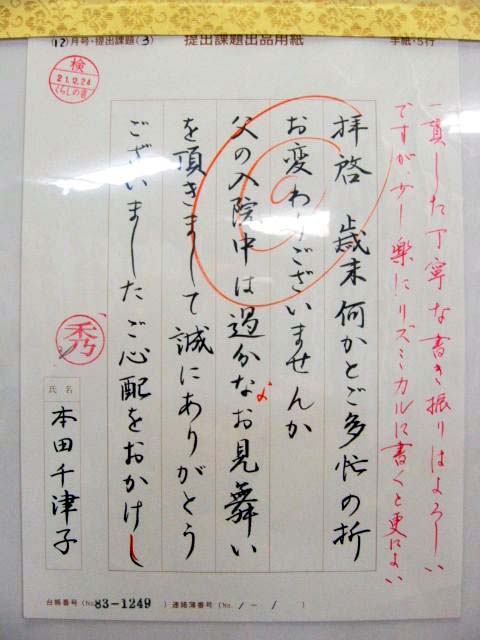 (12)月号・提出課題(3)
提出課題出品用紙
手紙・5行
検
21.12.24
くらしの書
一貫した丁寧な書き振りはよろしい
ですが、少し楽にリズミカルに書くと更によい
拝啓 歳末何かとご多忙の折
お変わりございませんか
父の入院中は過分なお見舞い
を頂きまして誠にありがとう
ございました ご心配をおかけし
秀
氏名
本田千津子
台帳番号(No.83-1249)連絡簿番号(No. / - / )